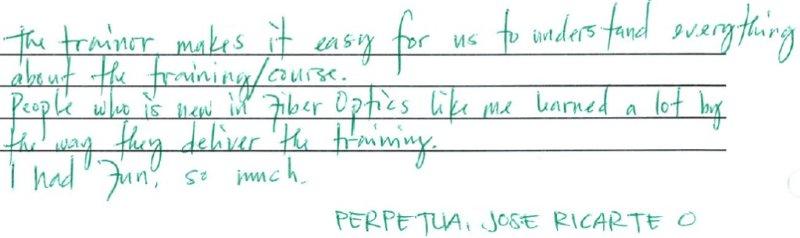 The trainor makes it easy for us to understand everything
about the training/course.
People who is new in Fiber Optics like me learned a lot by
the way they deliver the training.
I had Fun, so much.
PERPETUA, JOSE RICARTE O